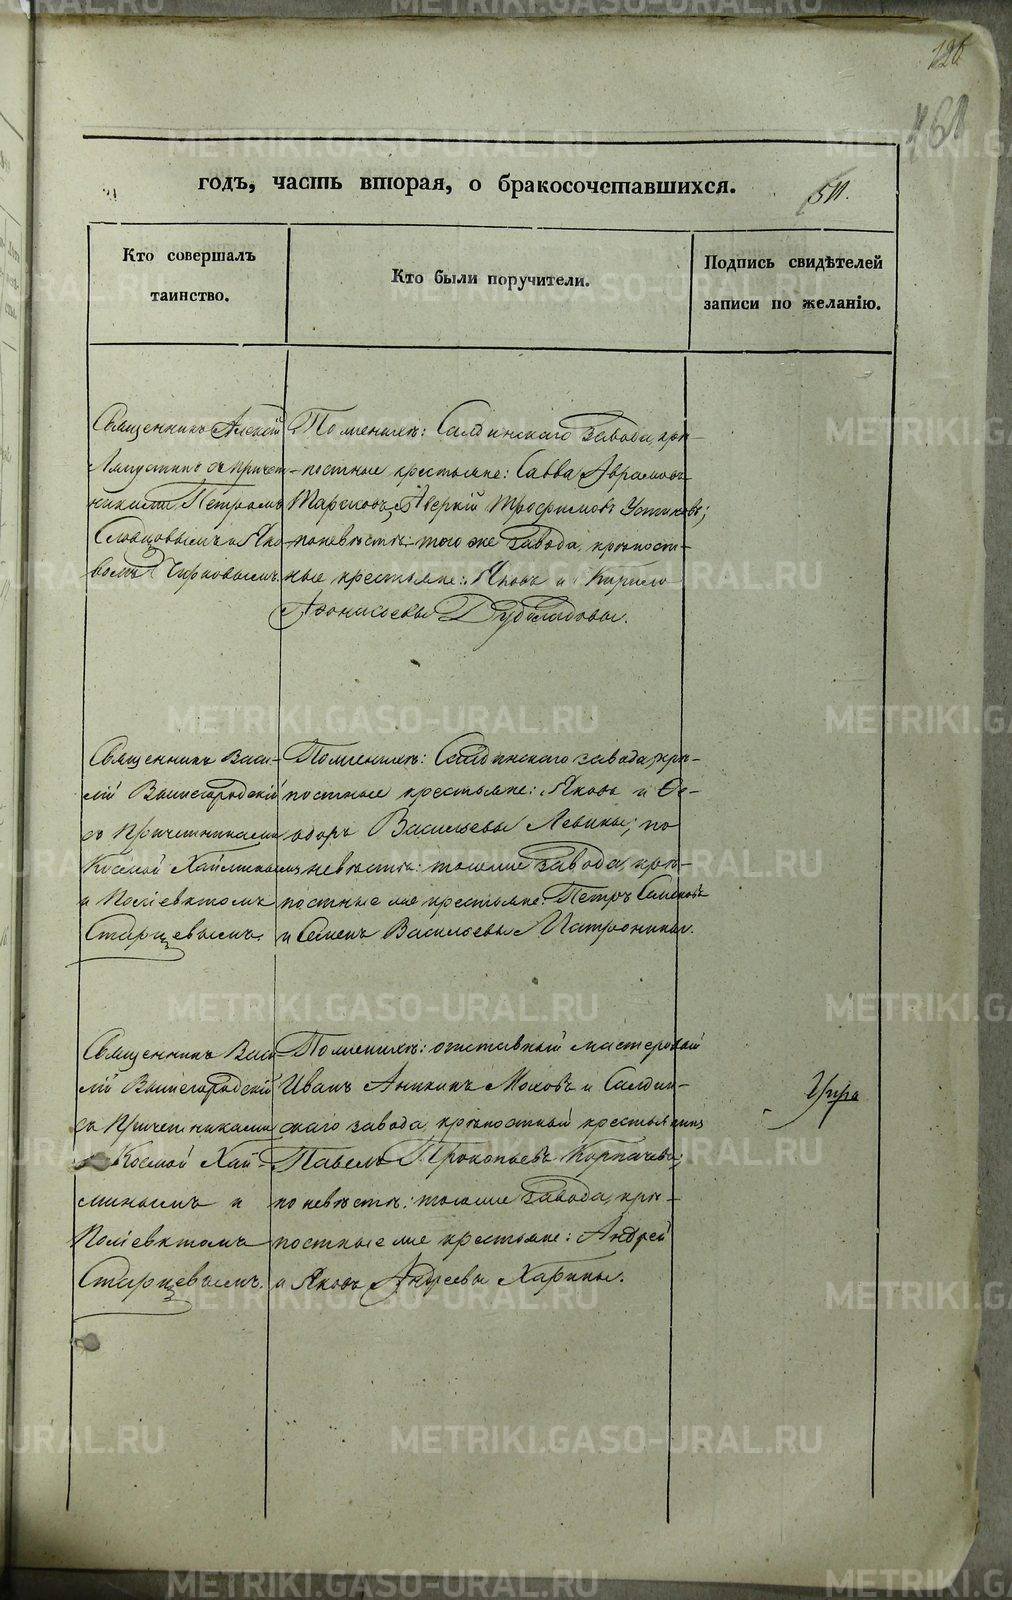 126
годъ, часть вторая, о бракосочетавшихся.
511.
Кто совершалъ
таинство.
Кто были поручители.
Подпись свидѣтелей
записи по желанію.
Священникъ Алексій
съ причет-
никами Петромъ
Словцовымъ и Яко-
вомъ Чирковымъ.
По женихѣ: Салдинскаго завода крѣ-
постные крестьяне: Савва Аврамовъ
и Аверкій Трофимовъ Устиновъ;
по невѣстѣ: того же завода, крѣпост-
ные крестьяне: Яковъ и Кирило
Афонасьевы
Священникъ Васи-
лій Вышегородскій
съ Причетниками
Космой Хайминымъ
и Поліевктомъ
Старцевымъ.
По женихѣ: Салдинскаго завода, крѣ-
постные крестьяне: Яковъ и Ѳе-
одоръ Васильевы Левины; по
невѣстѣ: тогоже завода, крѣ-
постные же крестьяне: Петръ
и Семенъ Васильевы
Священникъ Васи-
лій Вышегородскій
съ Причетниками
Космой Хай-
минымъ и
Поліевктомъ
Старцевымъ.
По женихѣ: отставный мастеровой
Иванъ Аникинъ Моховъ и Салдин-
скаго завода, крѣпостный крестьянинъ
Павелъ Прокопьевъ
по невѣстѣ: тогоже завода, крѣ-
постные же крестьяне: Андрей
и Яковъ Андреевы Харины.
METRIKI.GASO-URAL.RU